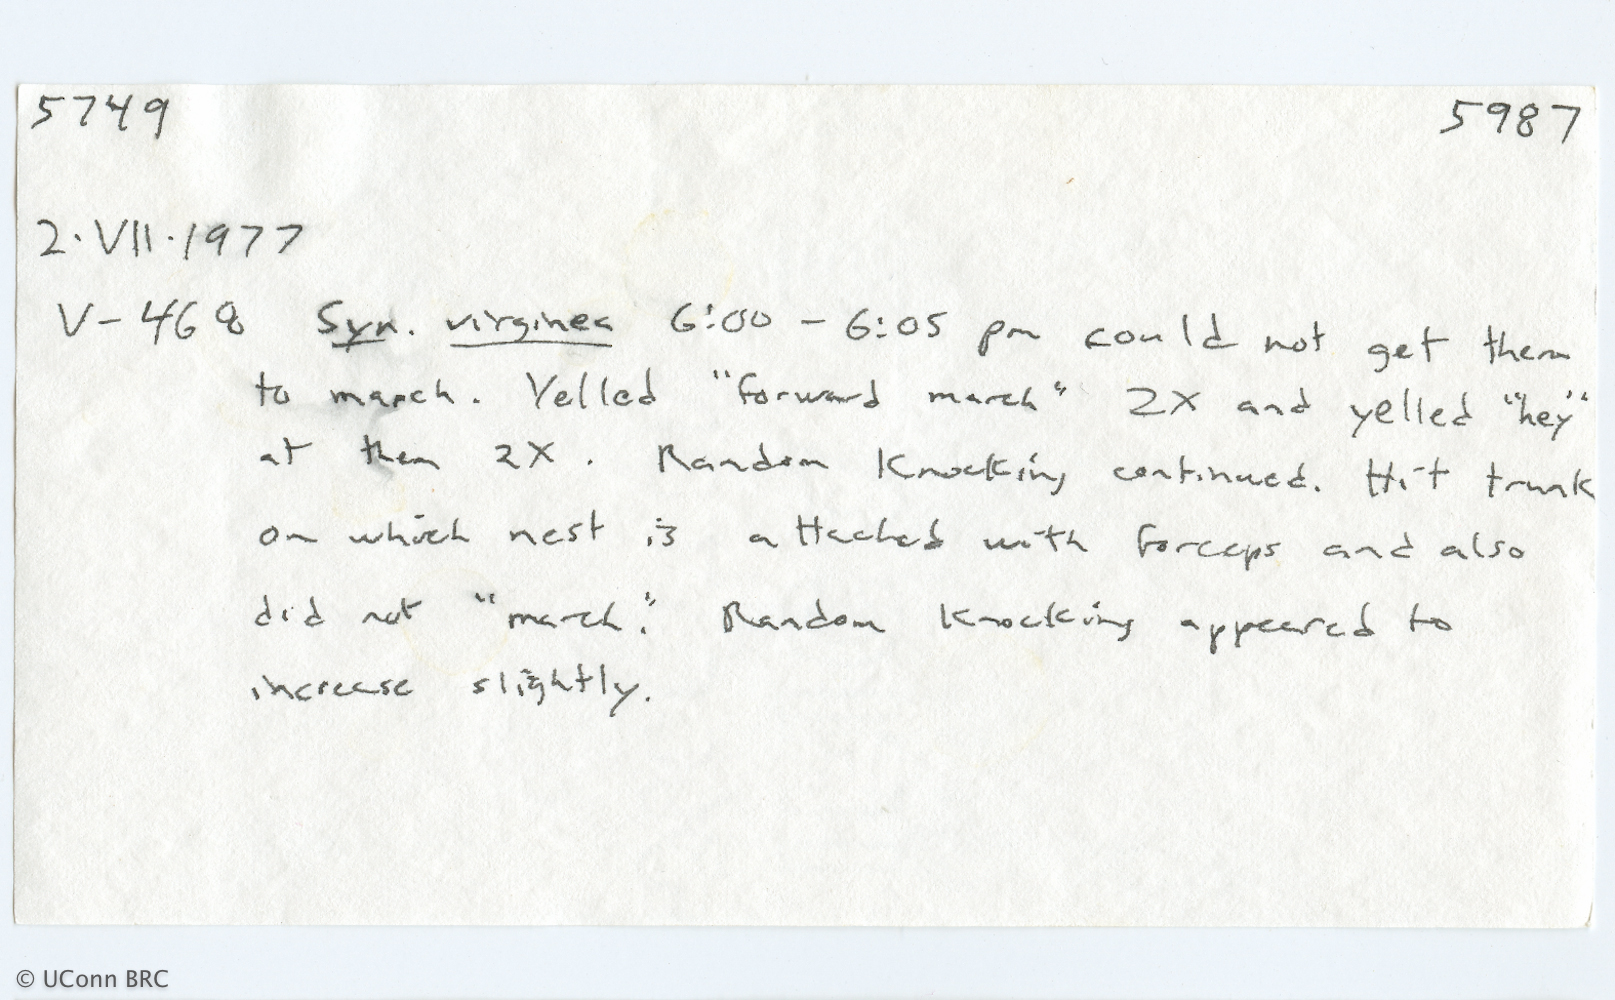 5749 5987
2·VII·1977
V-468 Syn. virginea 6:00 - 6:05 pm could not get them
to march. Yelled "forward march" 2X and yelled "hey"
at them 2X. Random Knocking continued. Hit trunk
on which nest is attached with forceps and also
did not "march." Random Knocking appeared to
increase slightly.
© UConn BRC